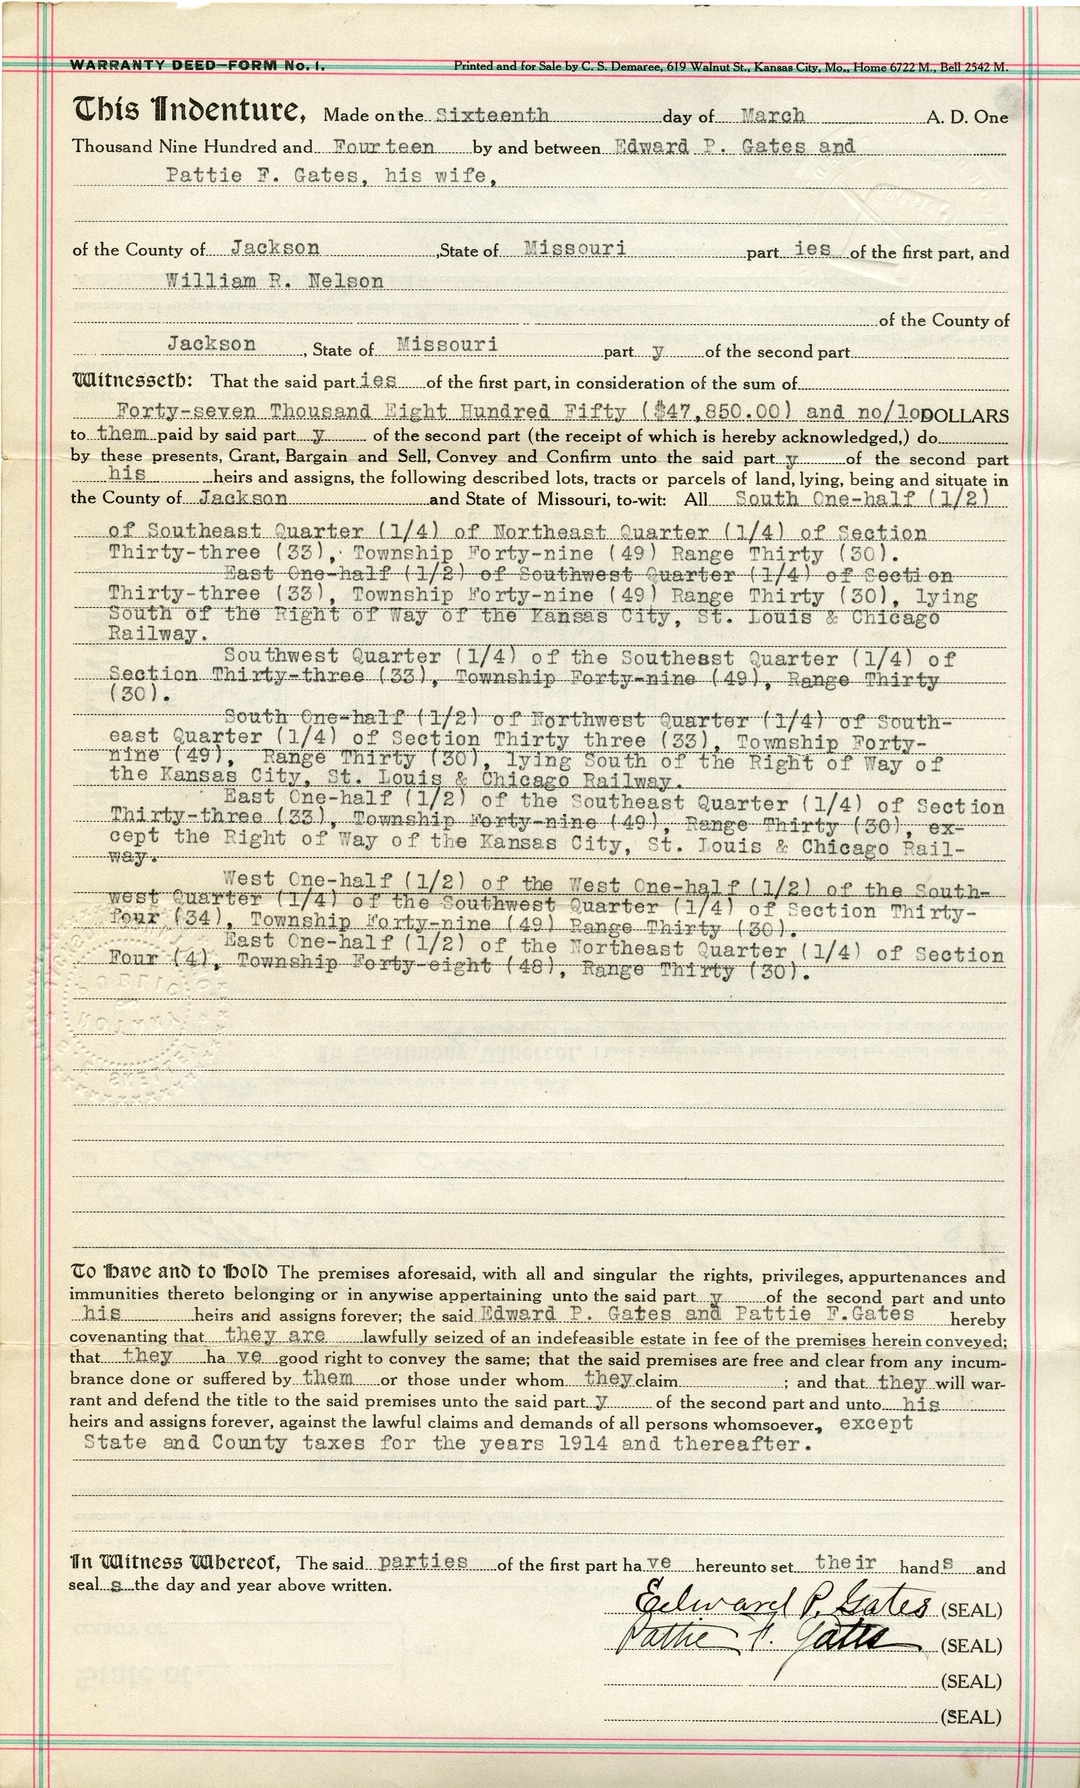 WARRANTY DEED—FORM No. 1. Printed and for Sale by C. S. Demaree, 619 Walnut St., Kansas City, Mo., Home 6722 M., Bell 2542 M.
This Indenture, Made on the Sixteenth day of March A. D. One
Thousand Nine Hundred and Fourteen by and between Edward P. Gates and
Pattie F. Gates, his wife,
of the County of Jackson ,State of Missouri part ies of the first part, and
William R. Nelson
of the County of
Jackson , State of Missouri part y of the second part
Witnesseth: That the said part ies of the first part, in consideration of the sum of
Forty-seven Thousand Eight Hundred Fifty ($47,850.00) and no/100 DOLLARS
to them paid by said part y of the second part (the receipt of which is hereby acknowledged,) do
by these presents, Grant, Bargain and Sell, Convey and Confirm unto the said part y of the second part
his heirs and assigns, the following described lots, tracts or parcels of land, lying, being and situate in
the County of Jackson and State of Missouri, to-wit: All South One-half (1/2)
of Southeast Quarter (1/4) of Northeast Quarter (1/4) of Section
Thirty-three (33), Township Forty-nine (49) Range Thirty (30).
East One-half (1/2) of Southwest Quarter (1/4) of Section
Thirty-three (33), Township Forty-nine (49) Range Thirty (30), lying
South of the Right of Way of the Kansas City, St. Louis & Chicago
Railway.
Southwest Quarter (1/4) of the Southeast Quarter (1/4) of
Section Thirty-three (33), Township Forty-nine (49), Range Thirty
(30).
South One-half (1/2) of Northwest Quarter (1/4) of South-
east Quarter (1/4) of Section Thirty three (33), Township Forty-
nine (49), Range Thirty (30), lying South of the Right of Way of
the Kansas City, St. Louis & Chicago Railway.
East One-half (1/2) of the Southeast Quarter (1/4) of Section
Thirty-three (33), Township Forty-nine (49), Range Thirty (30), ex-
cept the Right of Way of the Kansas City, St. Louis & Chicago Rail-
way.
West One-half (1/2) of the West One-half (1/2) of the South-
west Quarter (1/4) of the Southwest Quarter (1/4) of Section Thirty-
four (34), Township Forty-nine (49) Range Thirty (30).
East One-half (1/2) of the Northeast Quarter (1/4) of Section
Four (4), Township Forty-eight (48), Range Thirty (30).
To Have and to Hold The premises aforesaid, with all and singular the rights, privileges, appurtenances and
immunities thereto belonging or in anywise appertaining unto the said part y of the second part and unto
his heirs and assigns forever; the said Edward P. Gates and Pattie F.Gates hereby
covenanting that they are lawfully seized of an indefeasible estate in fee of the premises herein conveyed;
that they ha ve good right to convey the same; that the said premises are free and clear from any incum-
brance done or suffered by them or those under whom they claim ; and that they will war-
rant and defend the title to the said premises unto the said part y of the second part and unto his
heirs and assigns forever, against the lawful claims and demands of all persons whomsoever, except
State and County taxes for the years 1914 and thereafter.
In Witness Whereof, The said parties of the first part ha ve hereunto set their hand s and
seal s the day and year above written.
Edward P. Gates (SEAL)
Pattie F. Gates (SEAL)
(SEAL)
(SEAL)